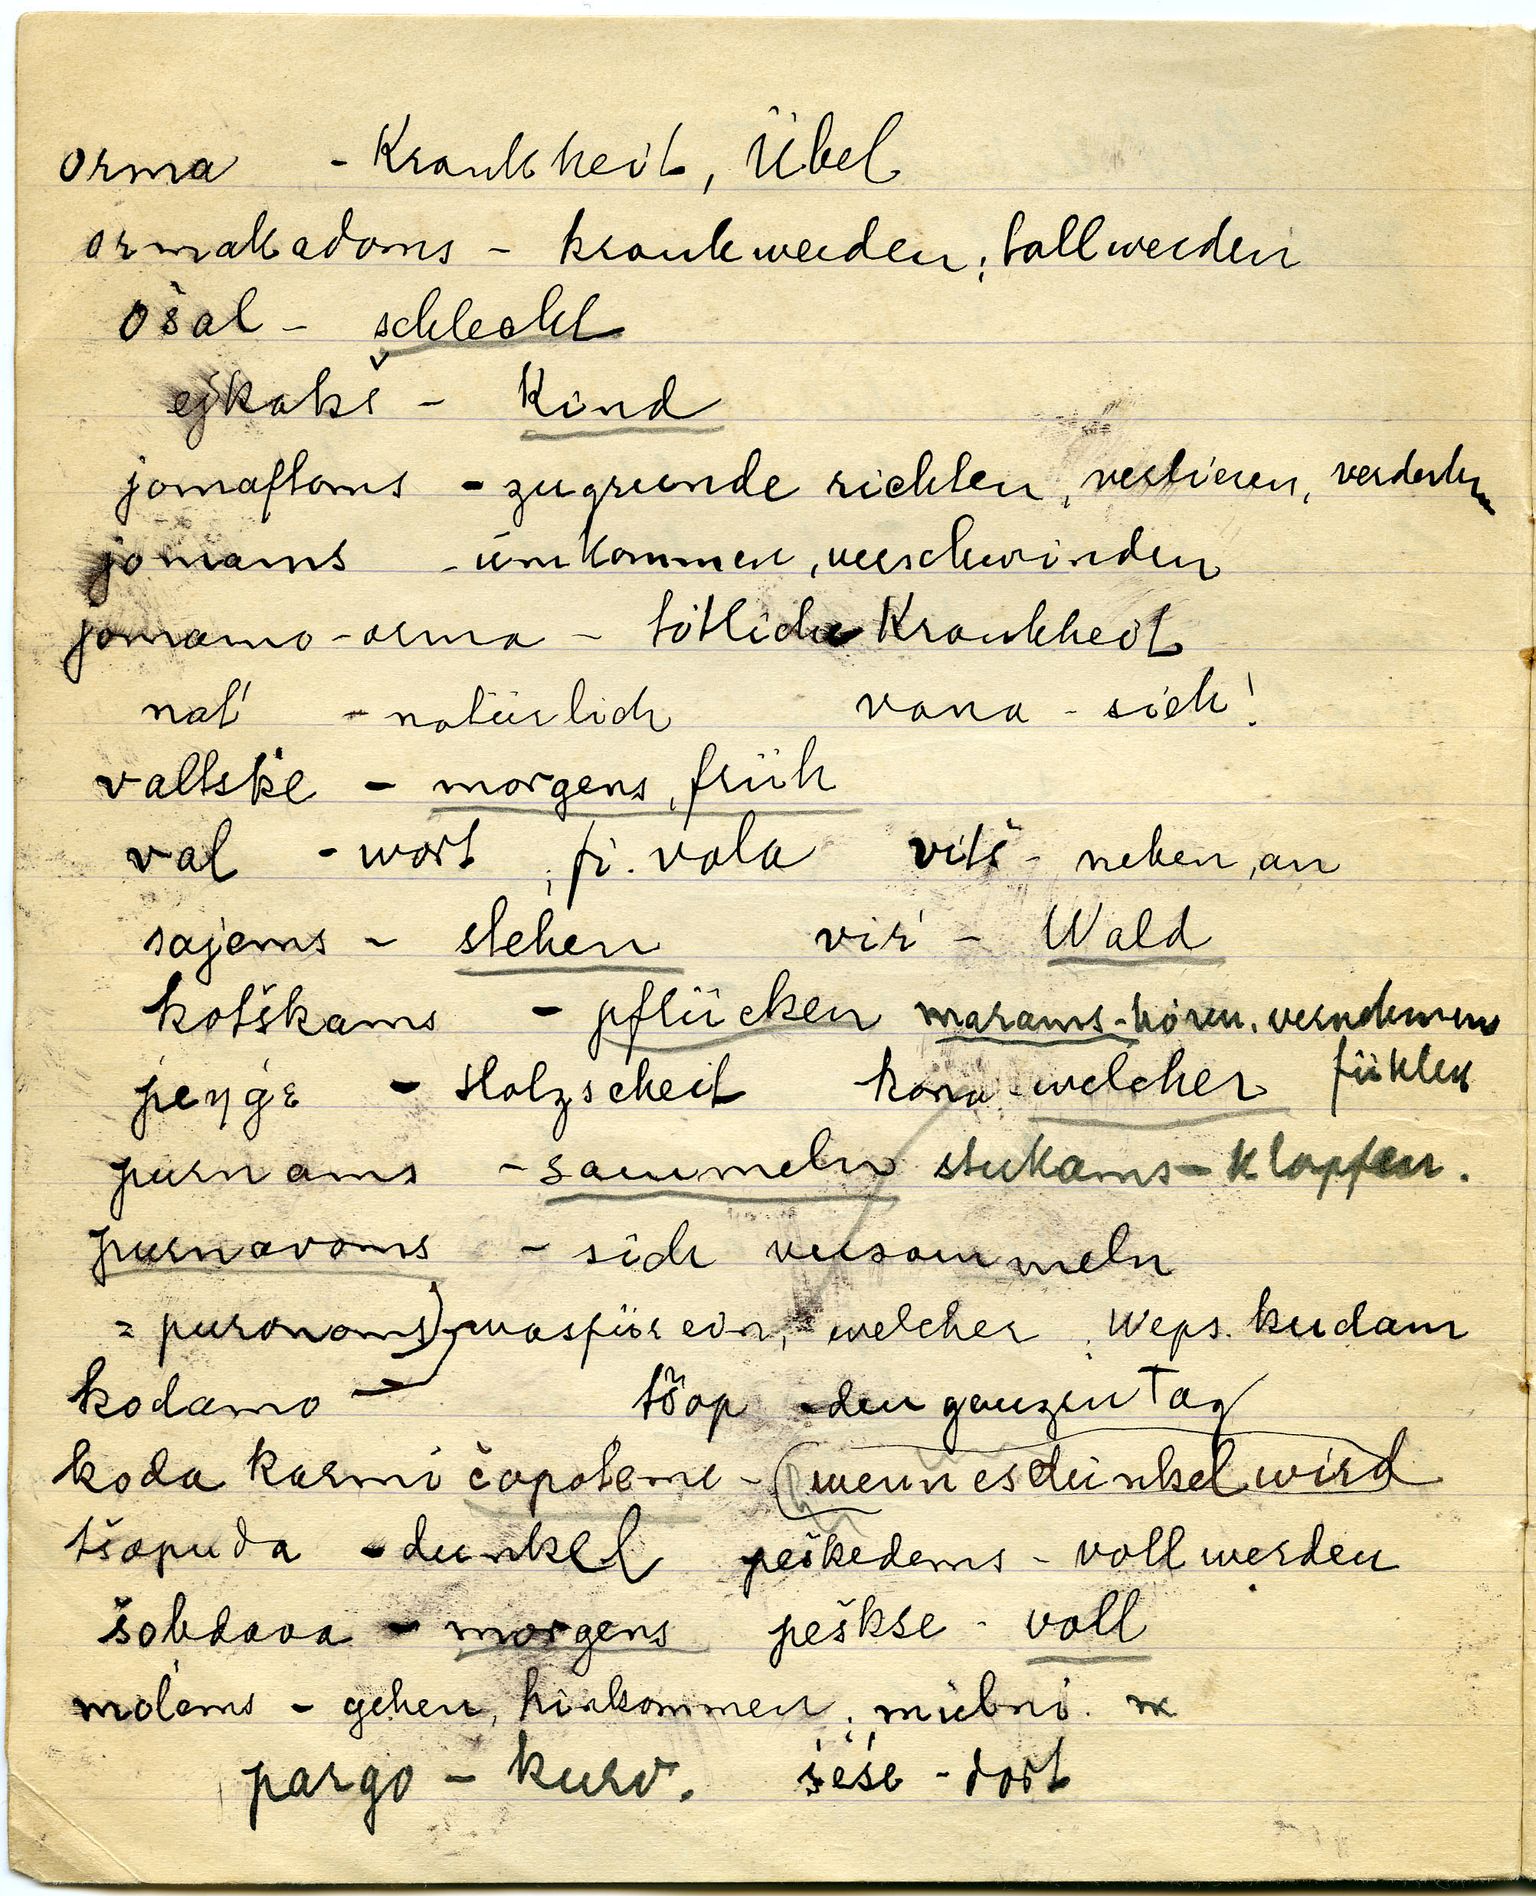 orma - Krankheit, Übel
ormakadoms - krankwerden, tollwerden
ošal - schlecht
ejkakš - Kind
jomaftoms - zugrunde richten, verlieren, verderben
jomams - umkommen, verschwinden
jomamo-orma - tötliche Krankheit
nať - natürlich vana - sieh!
valtske - morgens, früh
val - wort, fi. vala vitś - neben, an
sajems - stehen viŕ - Wald
kotškams - pflücken marams - hören, vernehmen
peŋge - Holzscheit kona - welcher fühlen
purnams - sammeln stukams - klopfen.
purnavoms - sich versammeln
= puronoms) wasfür ein, welcher, Weps. kudam
kodamo → tšop - den ganzen Tag
koda karmi čopoteme - (wenn es dunkel wird
tšopuda - dunkel peškedems - voll werden
šobdava - morgens peškse - voll
moĺems - gehen, hinkommen,
pargo - kurv. śeśe - dort